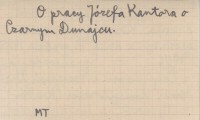 O pracy Józefa Kantora o
Czarnym Dunajcu.
MT